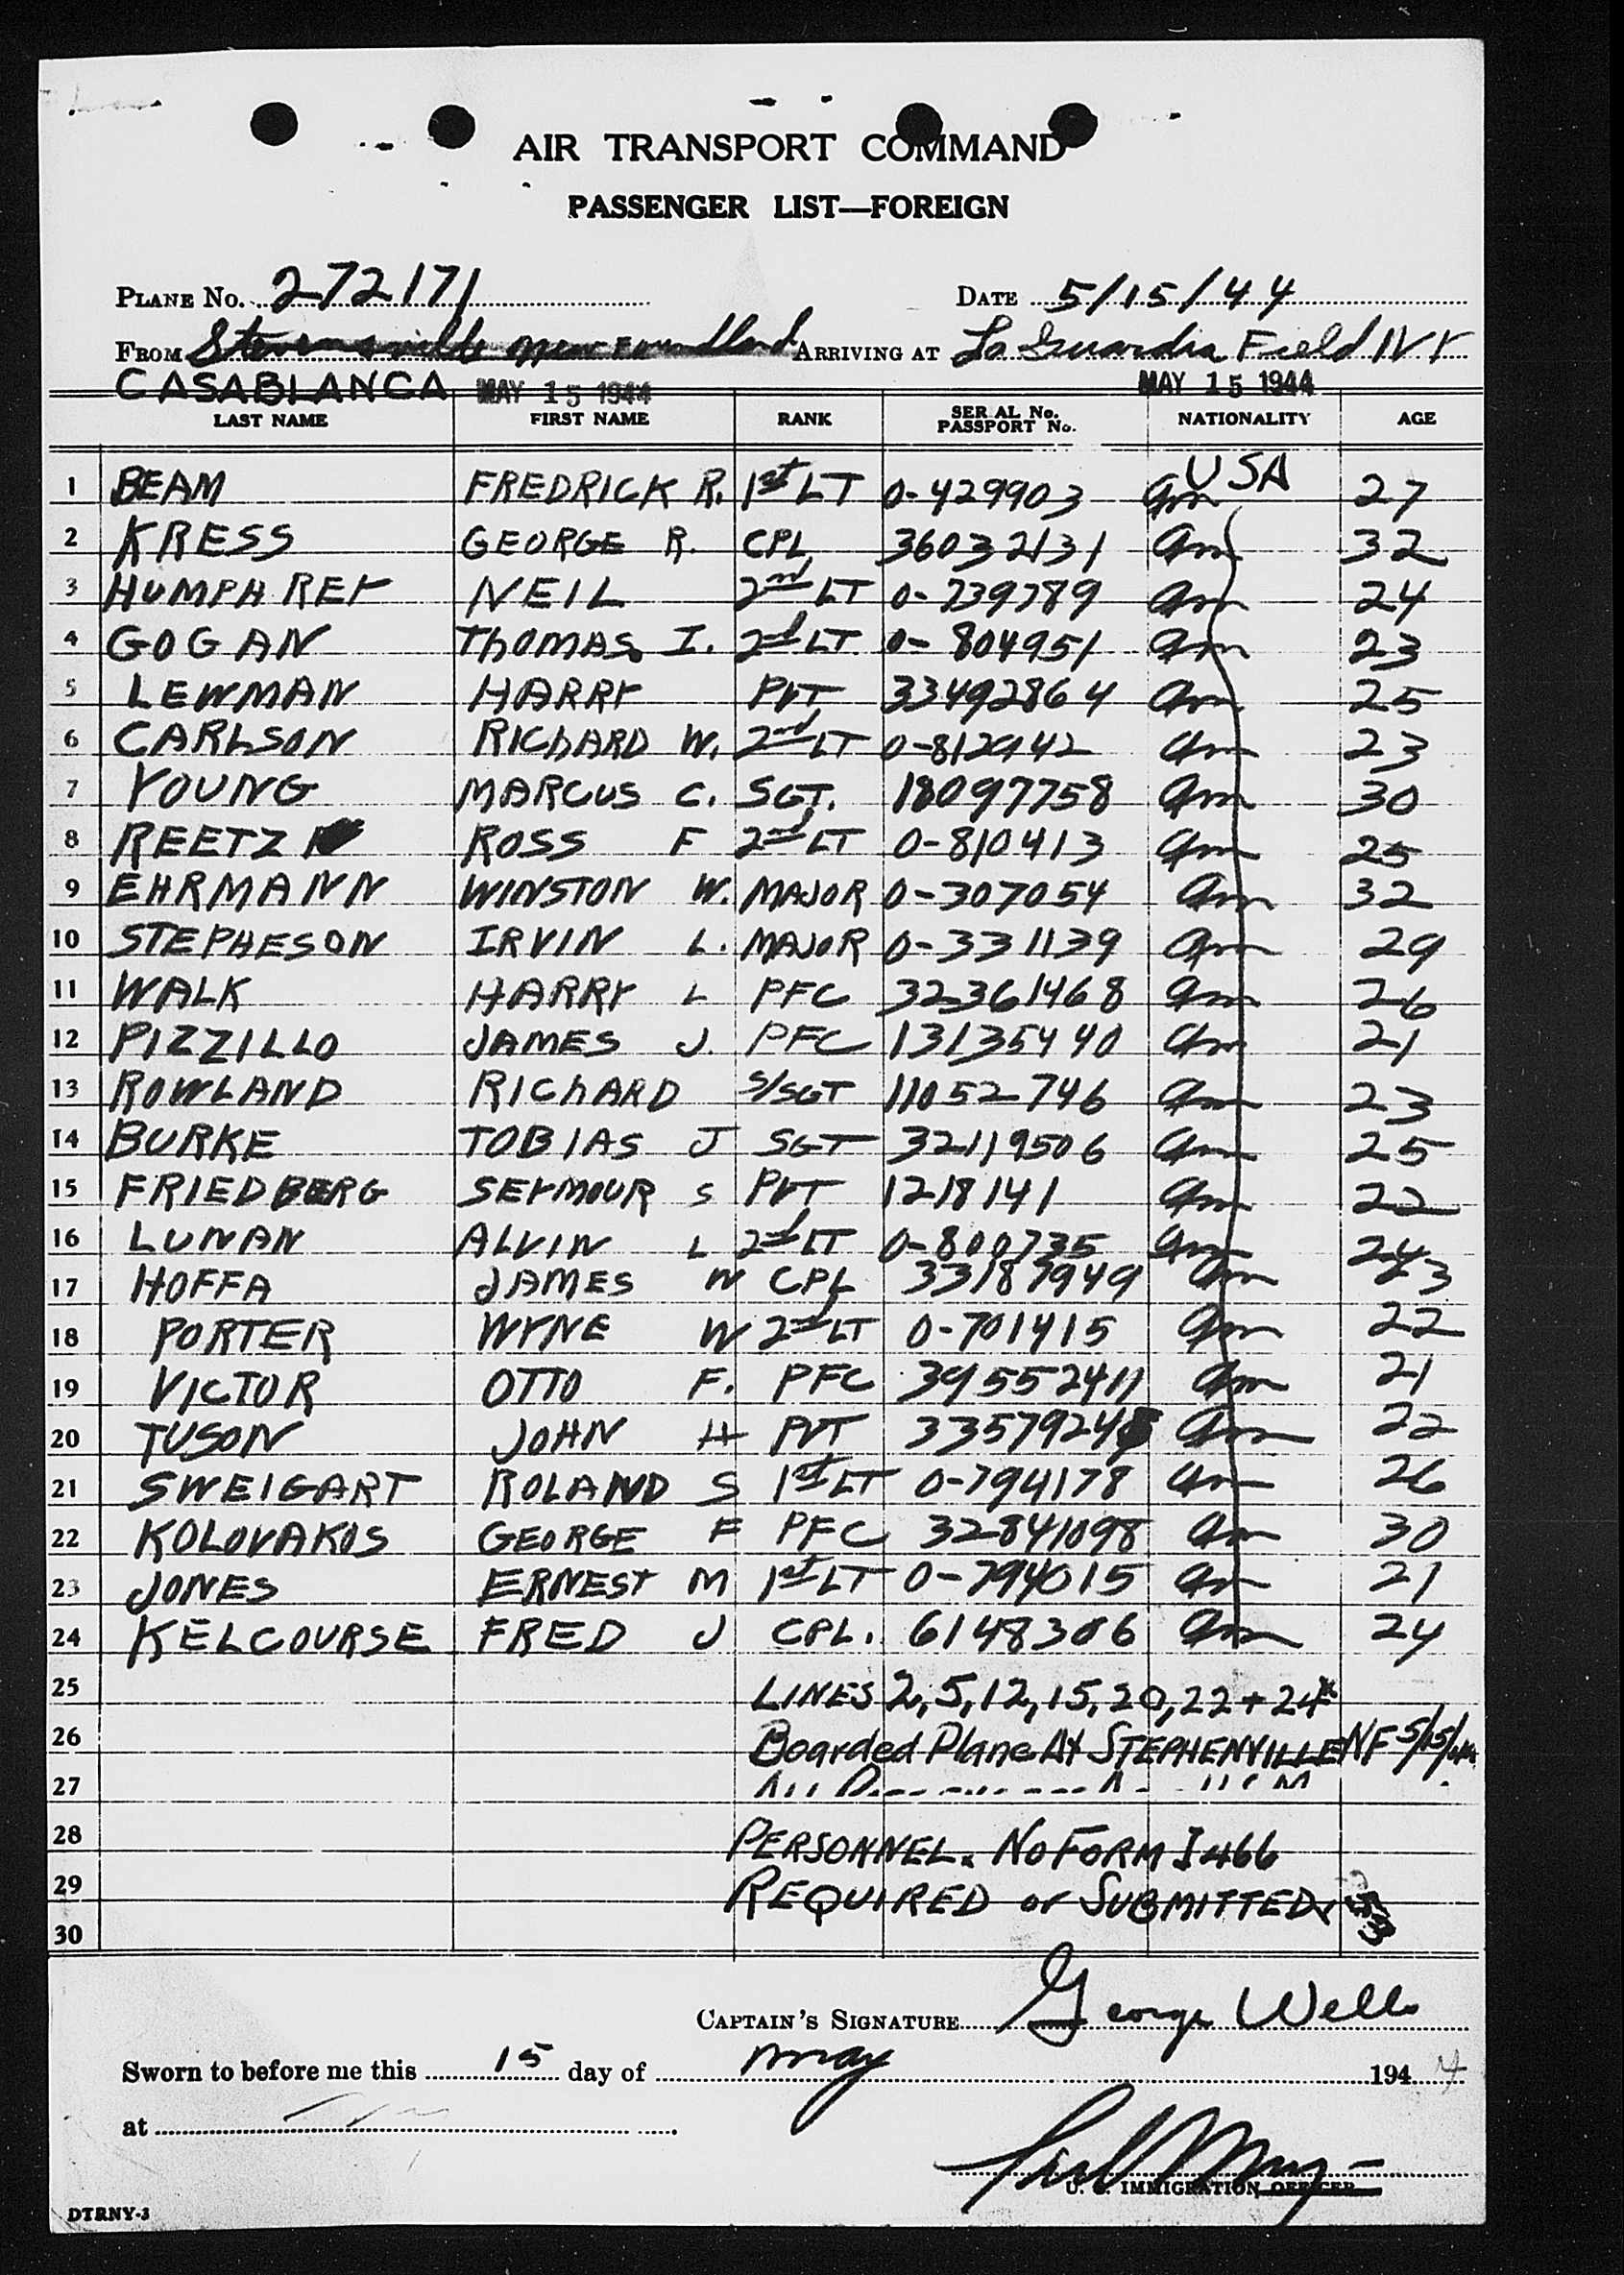 AIR TRANSPORT COMMAND
PASSENGER LIST—FOREIGN
PLANE No. 272171 DATE 5/15/44
FROM Stevensville New Foundland ARRIVING AT La Guardia Field NY
CASABLANCA MAY 15 1944 MAY 15 1944
LAST NAME FIRST NAME RANK SERIAL No. PASSPORT No. NATIONALITY AGE
1 BEAM FREDRICK R. 1st LT 0-429903 Am USA 27
2 KRESS GEORGE R. CPL 36032131 Am 32
3 HUMPHREY NEIL 2nd LT 0-739789 Am 24
4 GOGAN THOMAS I. 2nd LT 0-804951 Am 23
5 LEWMAN HARRY PVT 33492864 Am 25
6 CARLSON RICHARD W. 2nd LT 0-812942 Am 23
7 YOUNG MARCUS C. SGT. 18097758 Am 30
8 REETZ ROSS F 2nd LT 0-810413 Am 25
9 EHRMANN WINSTON W. MAJOR 0-307054 Am 32
10 STEPHESON IRVIN L. MAJOR 0-331139 Am 29
11 WALK HARRY L PFC 32361468 Am 26
12 PIZZILLO JAMES J. PFC 13135440 Am 21
13 ROWLAND RICHARD S/SGT 11052746 Am 23
14 BURKE TOBIAS J SGT 32119506 Am 25
15 FRIEDBERG SEYMOUR S PVT 1218141 Am 22
16 LUNAN ALVIN L 2nd LT 0-800735 Am 24
17 HOFFA JAMES W CPL 33187949 Am 23
18 PORTER WYNE W 2nd LT 0-701415 Am 22
19 VICTOR OTTO F. PFC 39552411 Am 21
20 TUSON JOHN H PVT Am 22
21 SWEIGART ROLAND S 1st LT 0-794178 Am 26
22 KOLOVAKOS GEORGE F PFC 32841098 Am 30
23 JONES ERNEST M 1st LT 0-794015 Am 21
24 KELCOURSE FRED J CPL. 6148306 Am 24
25 LINES 2, 5, 12, 15, 20, 22 + 24
26 Boarded Plane At STEPHENVILLE NF 5/15/44
27
28 PERSONNEL. NO FORM I 466
29 REQUIRED or SUBMITTED
30
CAPTAIN'S SIGNATURE George Wells
Sworn to before me this 15 day of May 1944
at
U. S. IMMIGRATION OFFICER
DTRNY-3